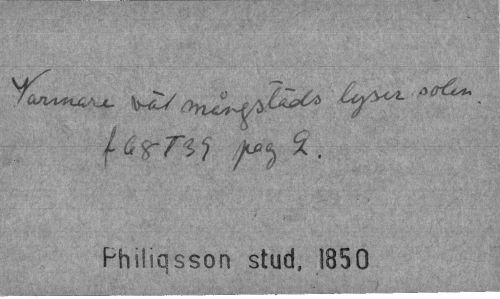 Varmare väl mångstäds lyser solen.
f 68 T 39 pag 2.
Philiqsson stud, 1850